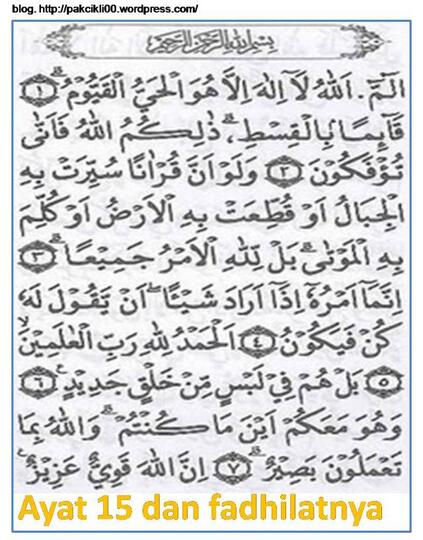 blog. http://pakcikli00.wordpress.com/
بِسْمِ اللهِ الرَّحْمٰنِ الرَّحِيْمِ
الٓمّٓ. اَللهُ لَآ اِلٰهَ اِلَّا هُوَ الْحَيُّ الْقَيُّوْمُ ۗ ﴿١﴾
قَآئِمًا بِالْقِسْطِ ۗ ذٰلِكُمُ اللهُ فَاَنّٰى
تُؤْفَكُوْنَ ﴿٢﴾ وَلَوْ اَنَّ قُرْاٰنًا سُيِّرَتْ بِهِ
الْجِبَالُ اَوْ قُطِّعَتْ بِهِ الْاَرْضُ اَوْ كُلِّمَ
بِهِ الْمَوْتٰى ۗ بَلْ لِلّٰهِ الْاَمْرُ جَمِيْعًا ۗ ﴿٣﴾
اِنَّمَآ اَمْرُهٗٓ اِذَآ اَرَادَ شَيْئًا ۙ اَنْ يَقُوْلَ لَهٗ
كُنْ فَيَكُوْنُ ﴿٤﴾ اَلْحَمْدُ لِلّٰهِ رَبِّ الْعٰلَمِيْنَ ۙ
﴿٥﴾ بَلْ هُمْ فِيْ لَبْسٍ مِّنْ خَلْقٍ جَدِيْدٍ ۚ ﴿٦﴾
وَهُوَ مَعَكُمْ اَيْنَ مَا كُنْتُمْ ۗ وَاللهُ بِمَا
تَعْمَلُوْنَ بَصِيْرٌ ۗ ﴿٧﴾ اِنَّ اللهَ قَوِيٌّ عَزِيْزٌ ۚ
Ayat 15 dan fadhilatnya